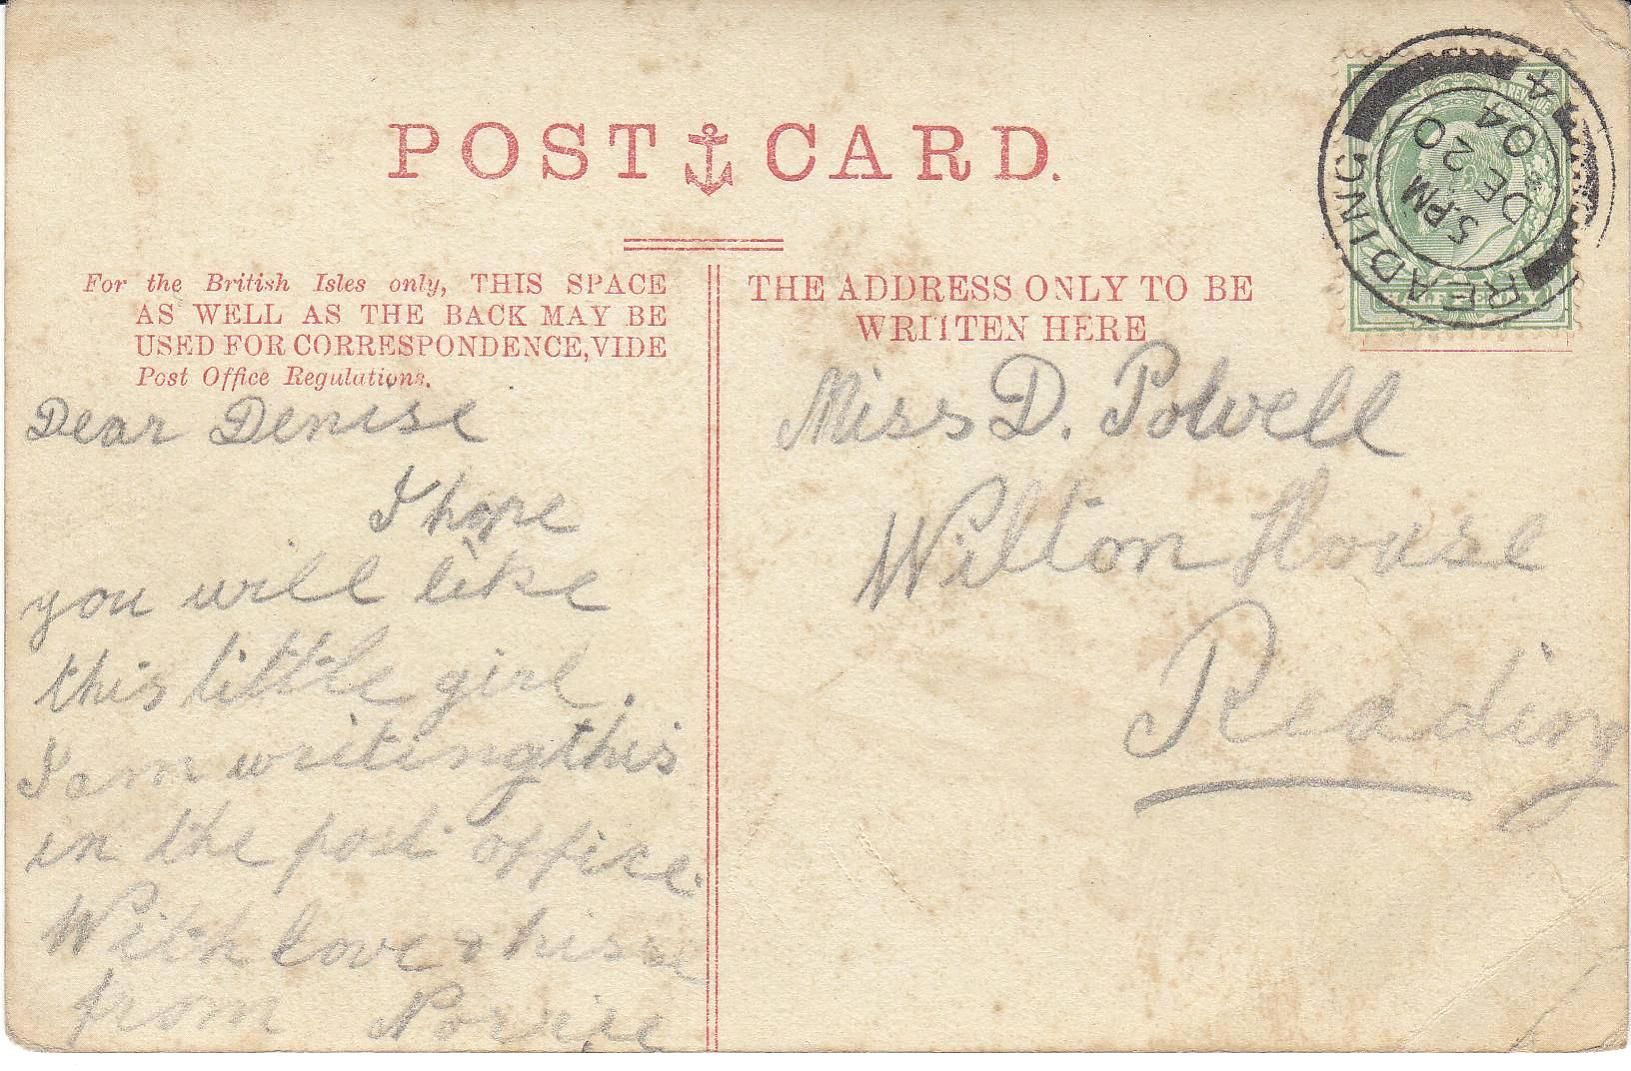 POST CARD.
For the British Isles only, THIS SPACE
AS WELL AS THE BACK MAY BE
USED FOR CORRESPONDENCE, VIDE
Post Office Regulations.
THE ADDRESS ONLY TO BE
WRITTEN HERE
READING
5. PM
DE 20
04
14
Dear Denise
I hope
you will like
this little girl.
I am writing this
in the post office.
With love &
from
Miss D. Powell
Wilton House
Reading